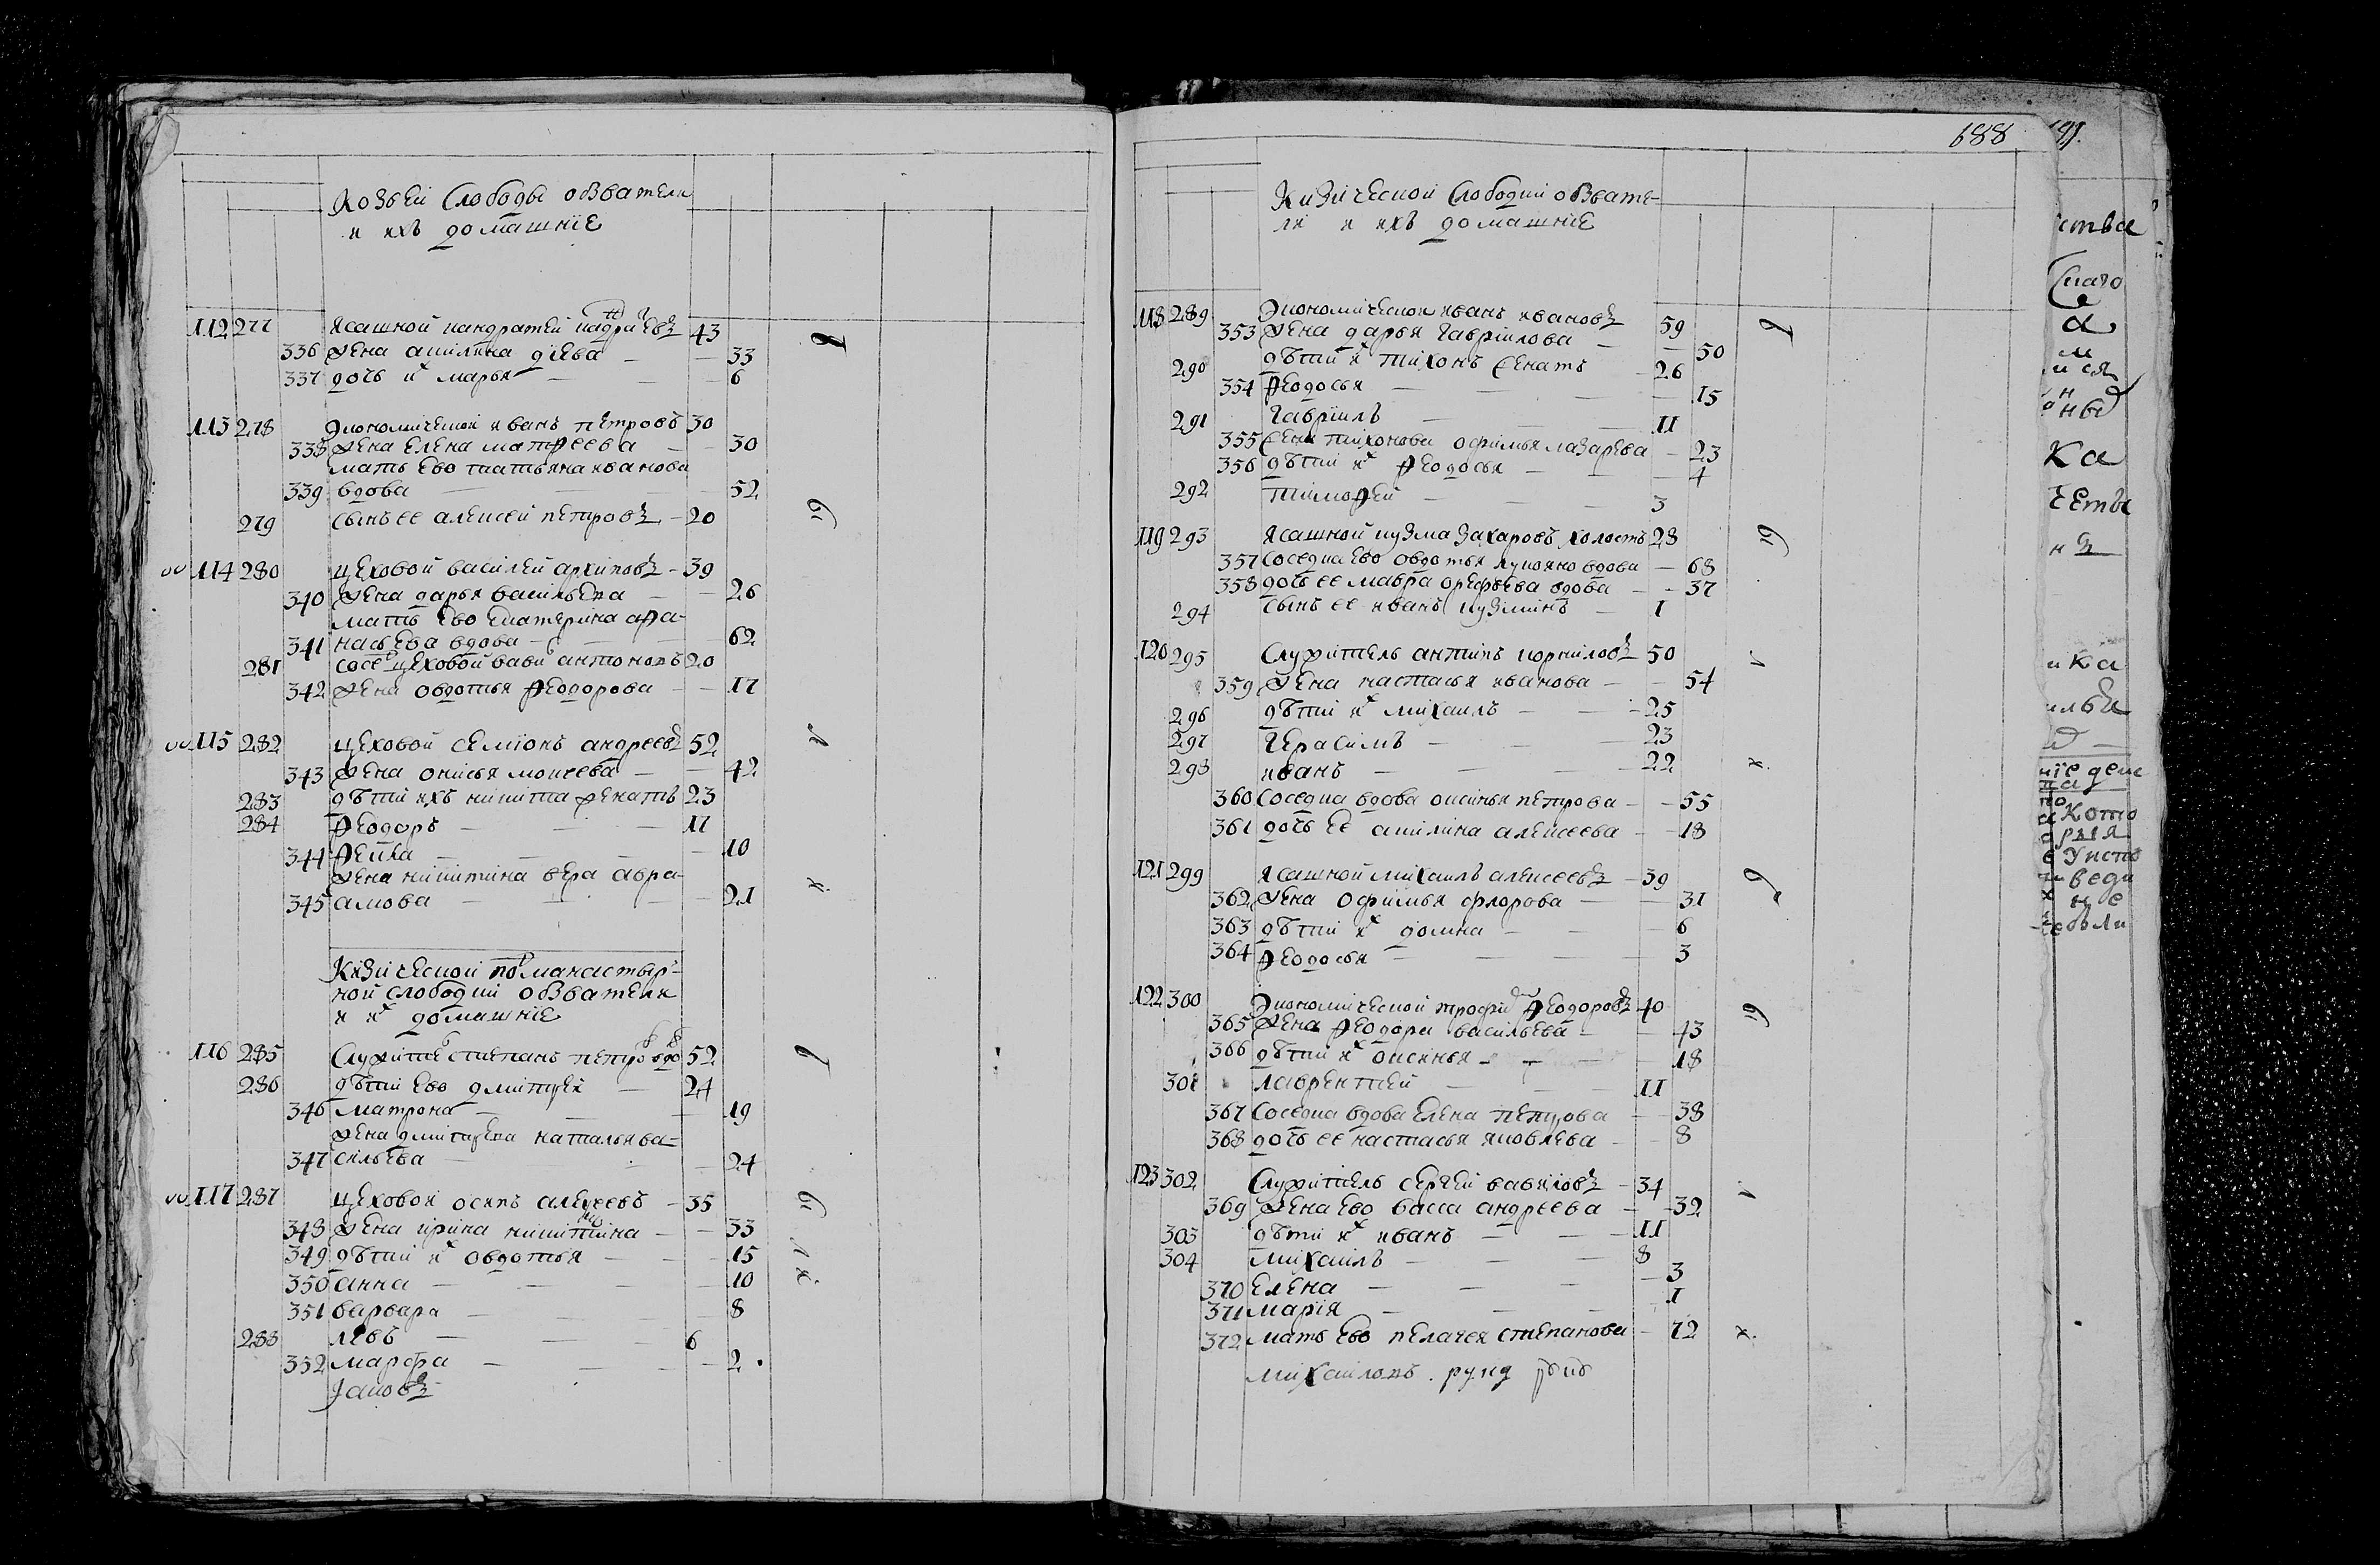 Козьей Слободы обватели
и ихъ домашніе
112 277 Ясашной кандратей 43
336 жена акилина диева — — 33
337 дочь их марья — — 6
113 278 Экономической иванъ петровъ 30
338 жена елена матфеева — 30
мать ево татьяна иванова
339 вдова — — 52
279 сынъ ее алексей петровъ — 20
114 280 цеховой василей архиповъ — 39
340 жена дарья васильева — — 26
мать ево екатерина афа-
341 насьева вдова — — 62
281 сосе цеховой вави антоновъ 20
342 жена овдотья феодорова — — 17
115 282 цеховой семіонъ андреевъ 52
343 жена онисья моисеева — — 42
283 дѣти ихъ никита женатъ 23
284 феодоръ — — 17
344 фекла — — 10
жена никитина вера авра-
345 амова — — 21
Кизической по манастыр-
ной слободки обватели
и их домашніе
116 285 Служите степанъ петро вдо 52
286 дѣти ево дмитрей — 24
346 матрона — — 19
жена дмитрева наталья ва-
347 сильева — — 24
117 287 цеховой осипъ алексеевъ — 35
348 жена ирина никитина — — 33
349 дѣти их овдотья — — 15
350 анна — — 10
351 варвара — — 8
288 левъ — — 6
352 марфа — — 2
688
Кизической Слободки обвате-
ли и ихъ домашніе
118 289 Экономической иванъ ивановъ 59
353 жена дарья гаврилова — — 50
290 дѣти их тихонъ женатъ — 26
354 феодосья — — 15
291 гавріилъ — — 11
355 жена тихонова офимья лазарева — 23
356 дѣти их феодосья — — 4
292 тимофей — — 3
119 293 Ясашной кузма захаровъ холостъ 28
357 соседка ево овдотья лукояно вдова — 68
358 дочь ее мавра орефьева вдова — — 37
294 сынъ ее иванъ кузминъ — 1
120 295 Служитель антипъ корниловъ 50
359 жена настасья иванова — — 54
296 дѣти их михаилъ — — 25
297 герасимъ — — 23
298 иванъ — — 22
360 соседка вдова оксинья петрова — — 55
361 дочь ее акилина алексеева — — 18
121 299 Ясашной михаилъ алексеевъ — 39
362 жена офимья флорова — — 31
363 дѣти их домна — — 6
364 феодосья — — 3
122 300 Экономической трофи феодоровъ 40
365 жена феодора васильева — — 43
366 дѣти их оксинья — — 18
301 лаврентей — — 11
367 соседка вдова елена петрова — — 38
368 дочь ее настасья яковлева — — 8
123 302 Служитель сергей вавиловъ — 34
369 жена ево васса андреева — — 32
303 дѣти их иванъ — — 11
304 михаилъ — — 8
370 елена — — 3
371 марія — — 1
372 мать ево пелагея степанова — 72